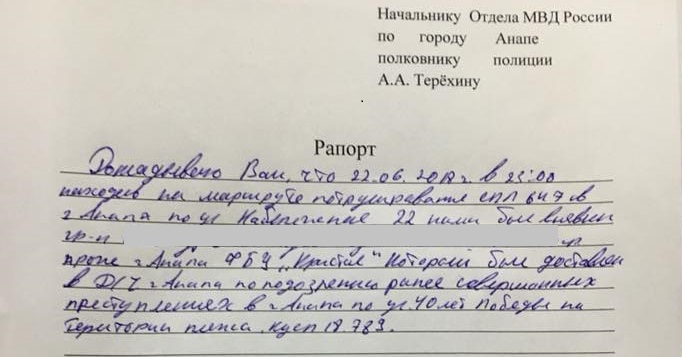 Начальнику Отдела МВД России
по городу Анапе
полковнику полиции
А.А. Терёхину
Рапорт
Докладываю Вам, что 22.06.2017г. в 23:00
находясь на маршруте патрулирования СПП 647 в
г Анапа по ул Набережная 22 нами был выявлен
гр-н
г Анапа ФБУ „Кристал" который был доставлен
в Д/Ч г Анапа по подозрению ранее совершонных
преступлениях в г Анапа по ул 40 лет Победы на
територии пляжа КУСП 18 789.